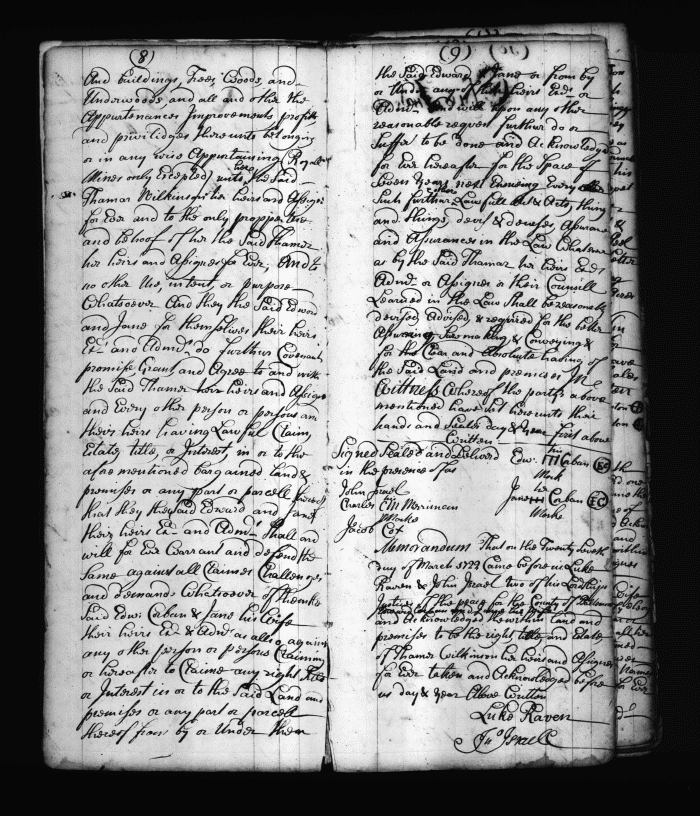 (8)
And buildings, Trees, Woods, and
Underwoods, and all and other the
Appurtenances Improvements profits
and priviledges thereunto belonging
or in any wise Appurtaining Royall
Mines only Excepted unto the Said
Thamar Wilkinson her heirs and Assigns
for Ever and to the only propper Use
and behoof of her the Said Thamar
her heirs and Assignes for Ever, And to
no other Use, intent, or purpose
Whatsoever And they the Said Edward
and Jane for themselves their heirs
Ex: and Adm: do further Covenant,
promise Grant and Agree to and with
the Said Thamar her heirs and Assigns
and Every other person or persons
their heirs having Lawful Claim,
Estate, title, or Interest, in or to the
afore mentioned bargained Land &
premises or any part or parcell thereof
that they the Said Edward and Jane
their heirs Ex: and Adm: Shall and
will for Ever Warrant and defend the
Same against all Claimes Challenges,
and demands Whatsoever of them the
Said Edw: Corban & Jane his Wife
their heirs Ex: & Adm: as also against
any other person or persons Claiming
or hereafter to Claime any right Title
or Interest in or to the Said Land and
premises or any part or parcell
thereof from by or Under them
(9)
the Said Edward & Jane or from by
or Under any of their heirs Ex: or
Adm: and will upon any other
reasonable request further do or
Suffer to be done and Acknowledge
for Ever hereafter for the Space of
Seven Years next Ensuing Every
Such further Lawfull Act & Acts, thing
and things, devise & devises, Assurance
and Assurances in the Law Whatsoever
as by the Said Thamar her heirs Ex:
Adm: or Assignes or their Councill
Learned in the Law Shall be reasonably
devised Advised & required for the better
Assuring Sure making & Conveying &
for the Clear and Absolute having of
the Said Land and premises In
Witness Whereof the partys above
mentioned have set hereunto their
hands and Seales day & Year first above
Written
Signed Sealed and Delivered
in the presence of us
Edw: Corban
Mark
John Israel
Charles CM Merriman
Marke
Jacob Cox
Jane Corban
Marke
Memorandum That on the Twenty
day of March Came before us Luke
Raven & John Israel two of his Lordships
Justices of the peace for the County of
and Acknowledged the within Land and
premises to be the right title and Estate
of Thamer Wilkinson her heirs and Assignes
for Ever taken and Acknowledged before
us day & Year Above Written
Luke Raven
Jno Israel